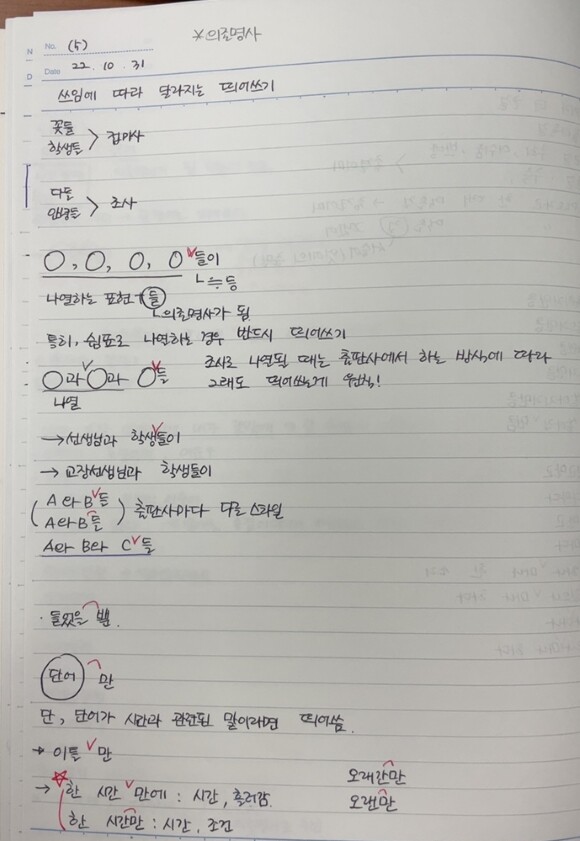 No. (5)
※의존명사
Date 22. 10. 31
쓰임에 따라 달라지는 띄어쓰기
꽃들
학생들 > 접미사
다들
안녕들 > 조사
○, ○, ○, ○∨들이
ㄴ≒등
나열하는 표현+들
ㄴ의존명사가 됨
특히, 쉼표로 나열하는 경우 반드시 띄어쓰기
○과∨○과 ○∨들
나열
조사로 나열될 때는 출판사에서 하는 방식에 따라
그래도 띄어쓰는게 원칙!
→선생님과 학생∨들이
→교장선생님과 학생들이
( A와 B∨들
A와 B들 ) 출판사마다 다른 스타일
A와 B와 C∨들
· 들었을 뿐.
단어 만
단, 단어가 시간과 관련된 말이라면 띄어씀.
→ 이틀∨만
→ 한 시간∨만에 : 시간, 흘러감.
한 시간만 : 시간, 조건
오래간만
오랜만